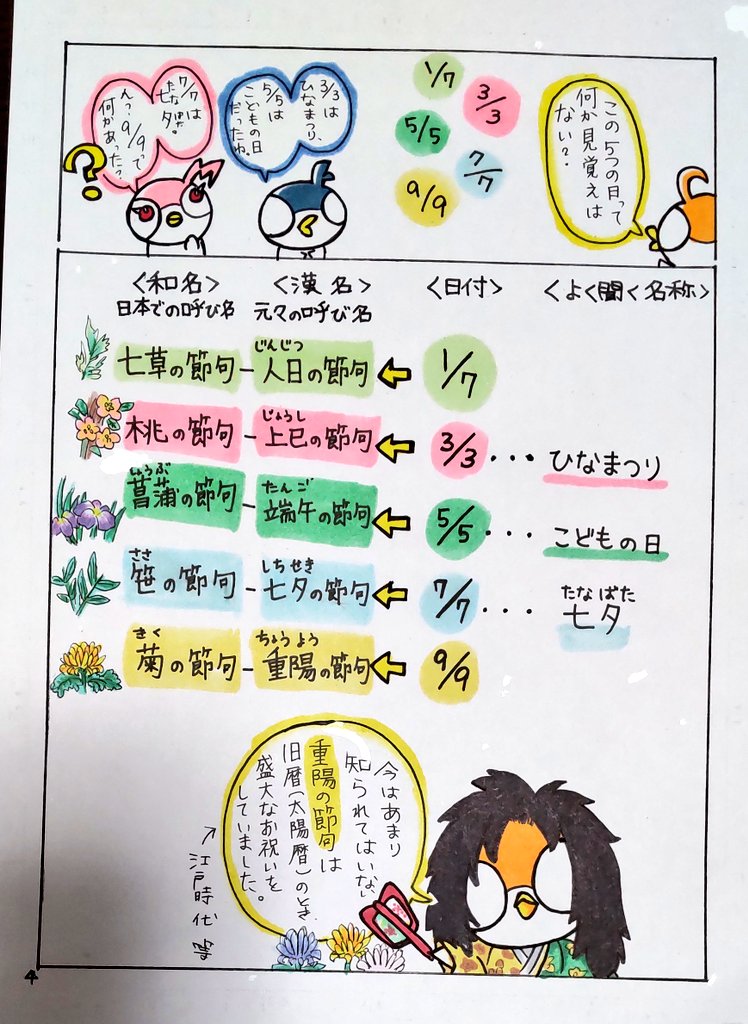 この5つの日って
何か見覚えは
ない？
1/7
3/3
5/5
7/7
9/9
3/3は
ひなまつり、
5/5は
こどもの日
だったね。
7/7は
七夕
ん？9/9って
何かあった？
?
<和名>
<漢名>
<日付>
<よく聞く名称>
日本での呼び名
元々の呼び名
じんじつ
七草の節句－人日の節句 ← 1/7
じょうし
桃の節句－上巳の節句 ← 3/3 ・・・ ひなまつり
しょうぶ たんご
菖蒲の節句－端午の節句 ← 5/5 ・・・ こどもの日
ささ しちせき たなばた
笹の節句－七夕の節句 ← 7/7 ・・・ 七夕
きく ちょうよう
菊の節句－重陽の節句 ← 9/9
今はあまり
知られてはいない
重陽の節句は
旧暦(太陽暦)のとき、
盛大なお祝いを
していました。
江戸時代等
4